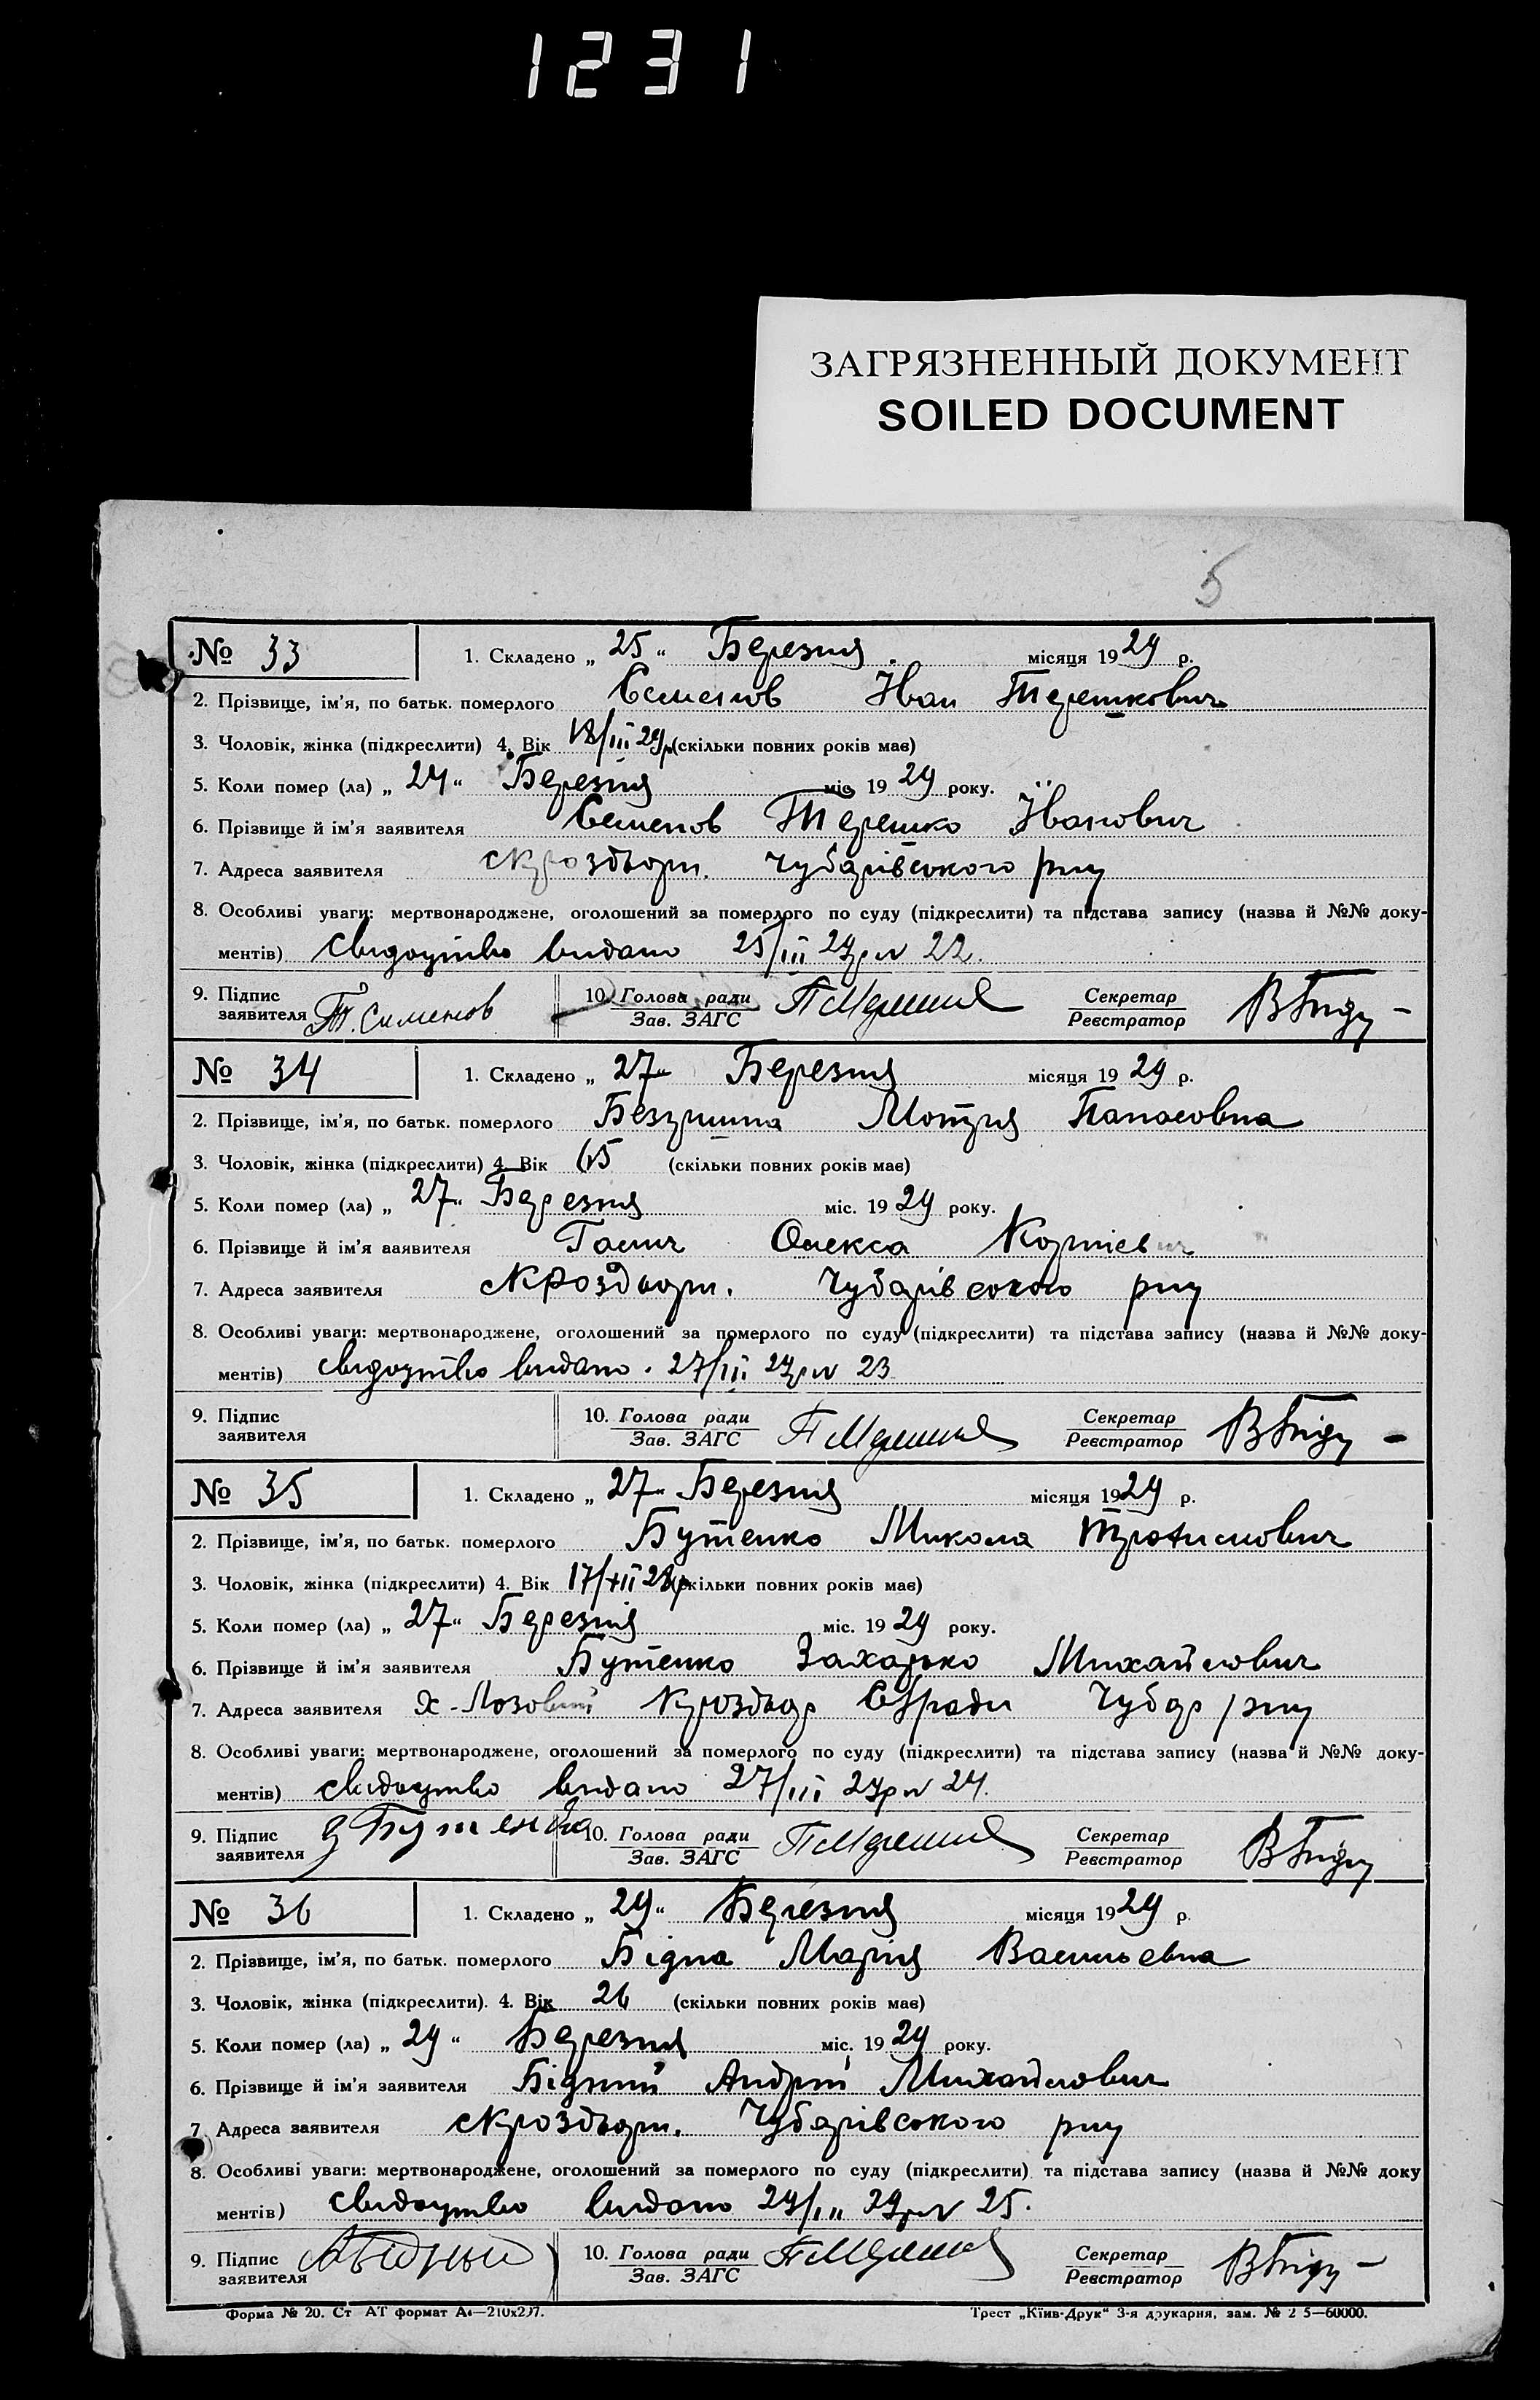 1231
ЗАГРЯЗНЕННЫЙ ДОКУМЕНТ
SOILED DOCUMENT
5
№ 33 1. Складено „ 25 “ Березня місяця 1929 р.
2. Прізвище, ім'я, по батьк. померлого Семенов Іван Терешкович
3. Чоловік, жінка (підкреслити) 4. Вік 18/III 29р (скільки повних років має)
5. Коли помер (ла) „ 24 “ Березня міс 1929 року.
6. Прізвище й ім'я заявителя Семенов Терешко Іванович
7. Адреса заявителя Чубарівського рну
8. Особливі уваги: мертвонароджене, оголошений за померлого по суду (підкреслити) та підстава запису (назва й №№ доку-
ментів) свидоцтво видано 25/III 29р N 22.
9. Підпис заявителя Т. Сименов 10. Голова ради Секретар
Зав. ЗАГС Реєстратор
№ 34 1. Складено „ 27 “ Березня місяця 1929 р.
2. Прізвище, ім'я, по батьк. померлого Мотря Панасовна
3. Чоловік, жінка (підкреслити) 4. Вік 65 (скільки повних років має)
5. Коли помер (ла) „ 27 “ Березня міс. 1929 року.
6. Прізвище й ім'я заявителя Олекса Корнієвич
7. Адреса заявителя Чубарівського рну
8. Особливі уваги: мертвонароджене, оголошений за померлого по суду (підкреслити) та підстава запису (назва й №№ доку-
ментів) свидоцтво видано. 27/III 29р N 23
9. Підпис заявителя 10. Голова ради Секретар
Зав. ЗАГС Реєстратор
№ 35 1. Складено „ 27 “ Березня місяця 1929 р.
2. Прізвище, ім'я, по батьк. померлого Бутенко Микола
3. Чоловік, жінка (підкреслити) 4. Вік 17/XII 28р (скільки повних років має)
5. Коли помер (ла) „ 27 “ Березня міс. 1929 року.
6. Прізвище й ім'я заявителя Бутенко Захарко Михайлович
7. Адреса заявителя Х-Лозовий С/ради Чубар рну
8. Особливі уваги: мертвонароджене, оголошений за померлого по суду (підкреслити) та підстава запису (назва й №№ доку-
ментів) свидоцтво видано 27/III 29р N 24.
9. Підпис заявителя З Бутенко 10. Голова ради Секретар
Зав. ЗАГС Реєстратор
№ 36 1. Складено „ 29 “ Березня місяця 1929 р.
2. Прізвище, ім'я, по батьк. померлого Бідна Марія Васильевна
3. Чоловік, жінка (підкреслити). 4. Вік 26 (скільки повних років має)
5. Коли помер (ла) „ 29 “ Березня міс. 1929 року.
6. Прізвище й ім'я заявителя Бідний Андрій Михайлович
7. Адреса заявителя Чубарівського рну
8. Особливі уваги: мертвонароджене, оголошений за померлого по суду (підкреслити) та підстава запису (назва й №№ доку
ментів) свидоцтво видано 29/III 29р N 25.
9. Підпис заявителя 10. Голова ради Секретар
Зав. ЗАГС Реєстратор
Форма № 20. Ст АТ формат А4—210х297. Трест „Київ-Друк“ 3-я друкарня, зам. № 2 5—60000.